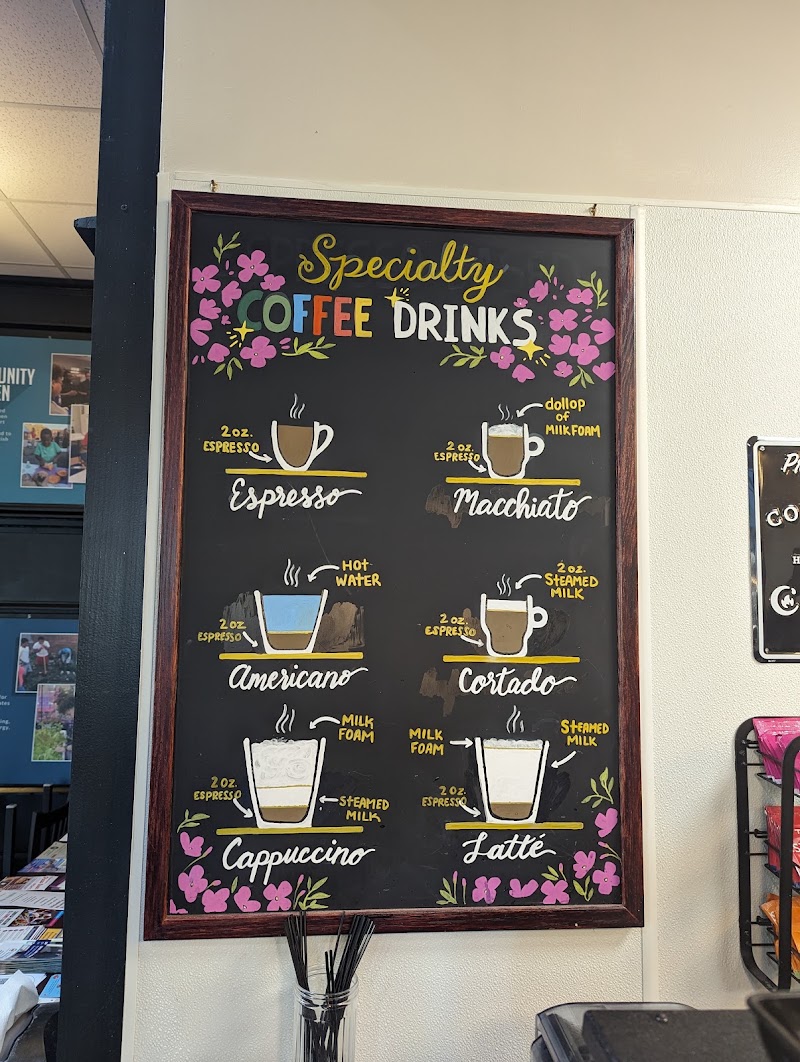 Specialty
COFFEE DRINKS
2 oz.
ESPRESSO
Espresso
dollop
of
MILK FOAM
2 oz.
ESPRESSO
Macchiato
HOT
WATER
2 oz
ESPRESSO
Americano
2 oz.
STEAMED
MILK
2 oz.
ESPRESSO
Cortado
MILK
FOAM
2 oz.
ESPRESSO
STEAMED
MILK
Cappuccino
MILK
FOAM
STEAMED
MILK
2 oz.
ESPRESSO
Latté
UNITY
EN